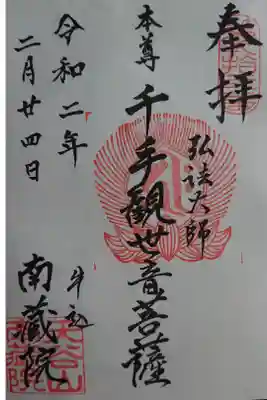 奉拝
弘法大師
本尊
千手観世音菩薩
令和二年
二月廿四日
牛込
南蔵院